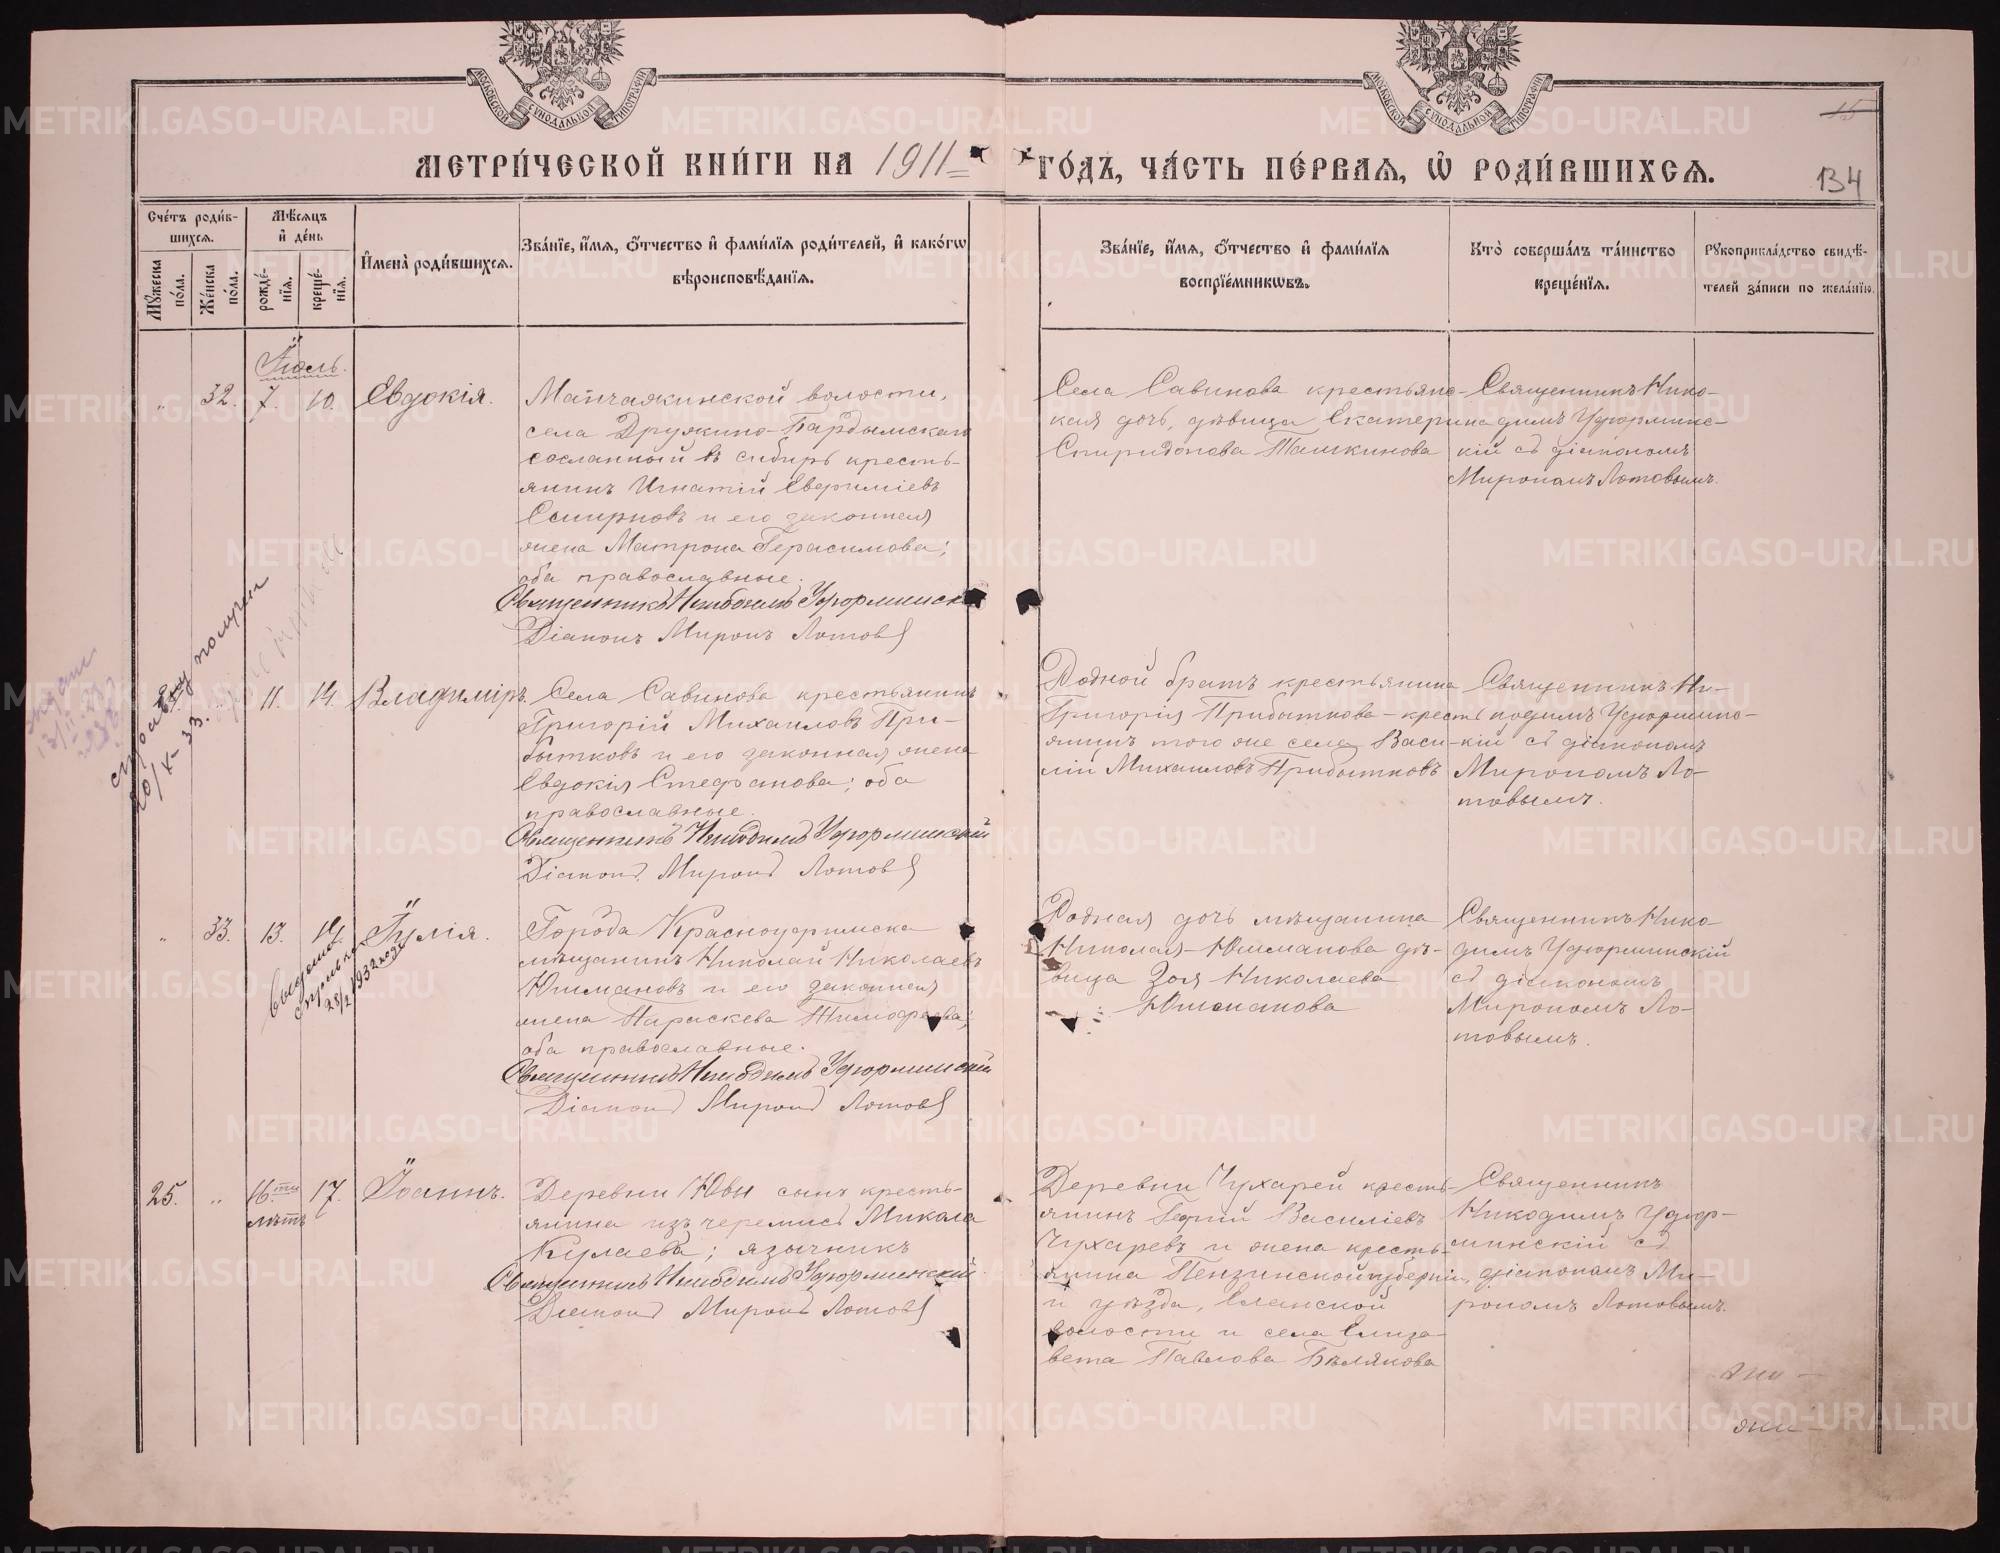 МОСКОВСКОЙ СѴНОДАЛЬНОЙ ТИПОГРАФІИ
МОСКОВСКОЙ СѴНОДАЛЬНОЙ ТИПОГРАФІИ
15
МЕТРИ́ЧЕСКОЙ КНИ́ГИ НА 1911 ГО́ДЪ, ЧА́СТЬ ПЕ́РВАѦ, Ѽ РОДИ́ВШИХСѦ.
134
Сче́тъ роди́в-
шихсѧ.
Мꙋжеска по́ла.
Же́нска по́ла.
Мѣ́сѧцъ
и҆ де́нь
рожде́-
нїѧ.
креще́-
нїѧ.
И҆мена̀ роди́вшихсѧ.
Зва́нїе, и҆́мѧ, ѻ҆́тчество и҆ фами́лїѧ роди́телей, и҆ како́гѡ
вѣроисповѣ́данїѧ.
Зва́нїе, и҆́мѧ, ѻ҆́тчество и҆ фами́лїѧ
воспрїе́мникѡвъ.
Кто̀ соверша́лъ та́инство
креще́нїѧ.
Рꙋкоприкла́дство свидѣ́-
телей за́писи по жела́нїю.
Іюль.
„ 32. 7. 10. Евдокія.
Манчажинской волости,
села Дружино-Бардымскаго
сосланный въ сибирь кресть-
янинъ Игнатій Евфиміевъ
Смирновъ и его законная
жена Матрона Герасимова;
оба православные.
Священникъ Никодимъ Уформинск
Діаконъ Миронъ Лотовъ
Села Савинова крестьянс-
кая дочь, дѣвица Екатерина
Спиридонова Пашкинова
Священникъ Нико-
димъ Уформинс-
кій съ діакономъ
Мирономъ Лотовымъ.
справку получил
20/X-33.
11. 14. Владиміръ.
Села Савинова крестьянинъ
Григорій Михаиловъ При-
бытковъ и его законная жена
Евдокія Стефанова; оба
православные.
Священникъ Никодимъ Уформинскій
Діаконъ Миронъ Лотовъ
Родной братъ крестьянина
Григорія Прибыткова-кресть
янинъ того же села Васи-
лій Михаиловъ Прибытковъ
Священникъ Ни-
кодимъ Уформинс-
кій съ діакономъ
Мирономъ Ло-
товымъ.
„ 33. 13. 14. Іулія.
28/2 1932 года
Города Красноуфимска
мѣщанинъ Николай Николаевъ
Юшмановъ и его законная
жена Параскева Тимофеева;
оба православные.
Священникъ Никодимъ Уформинскій
Діаконъ Миронъ Лотовъ
Родная дочь мѣщанина
Николая Юшманова дѣ-
вица Зоя Николаева
Юшманова
Священникъ Нико-
димъ Уформинскій
съ діакономъ
Мирономъ Ло-
товымъ.
25. „ 16.ти 17. Іоаннъ.
лѣтъ
Деревни Ювы сынъ кресть-
янина изъ черемисъ Микала
Кулаева; язычникъ
Священникъ Никодимъ Уформинскій
Діаконъ Миронъ Лотовъ
Деревни Чухарей кресть-
янинъ Георгій Василіевъ
Чухаревъ и жена кресть-
янина Пензинской губерніи,
и уѣзда, Еланской
волости и села Елиза-
вета Павлова Бѣлякова
Священникъ
Никодимъ Уфор-
минскій съ
діакономъ Ми-
рономъ Лотовымъ.